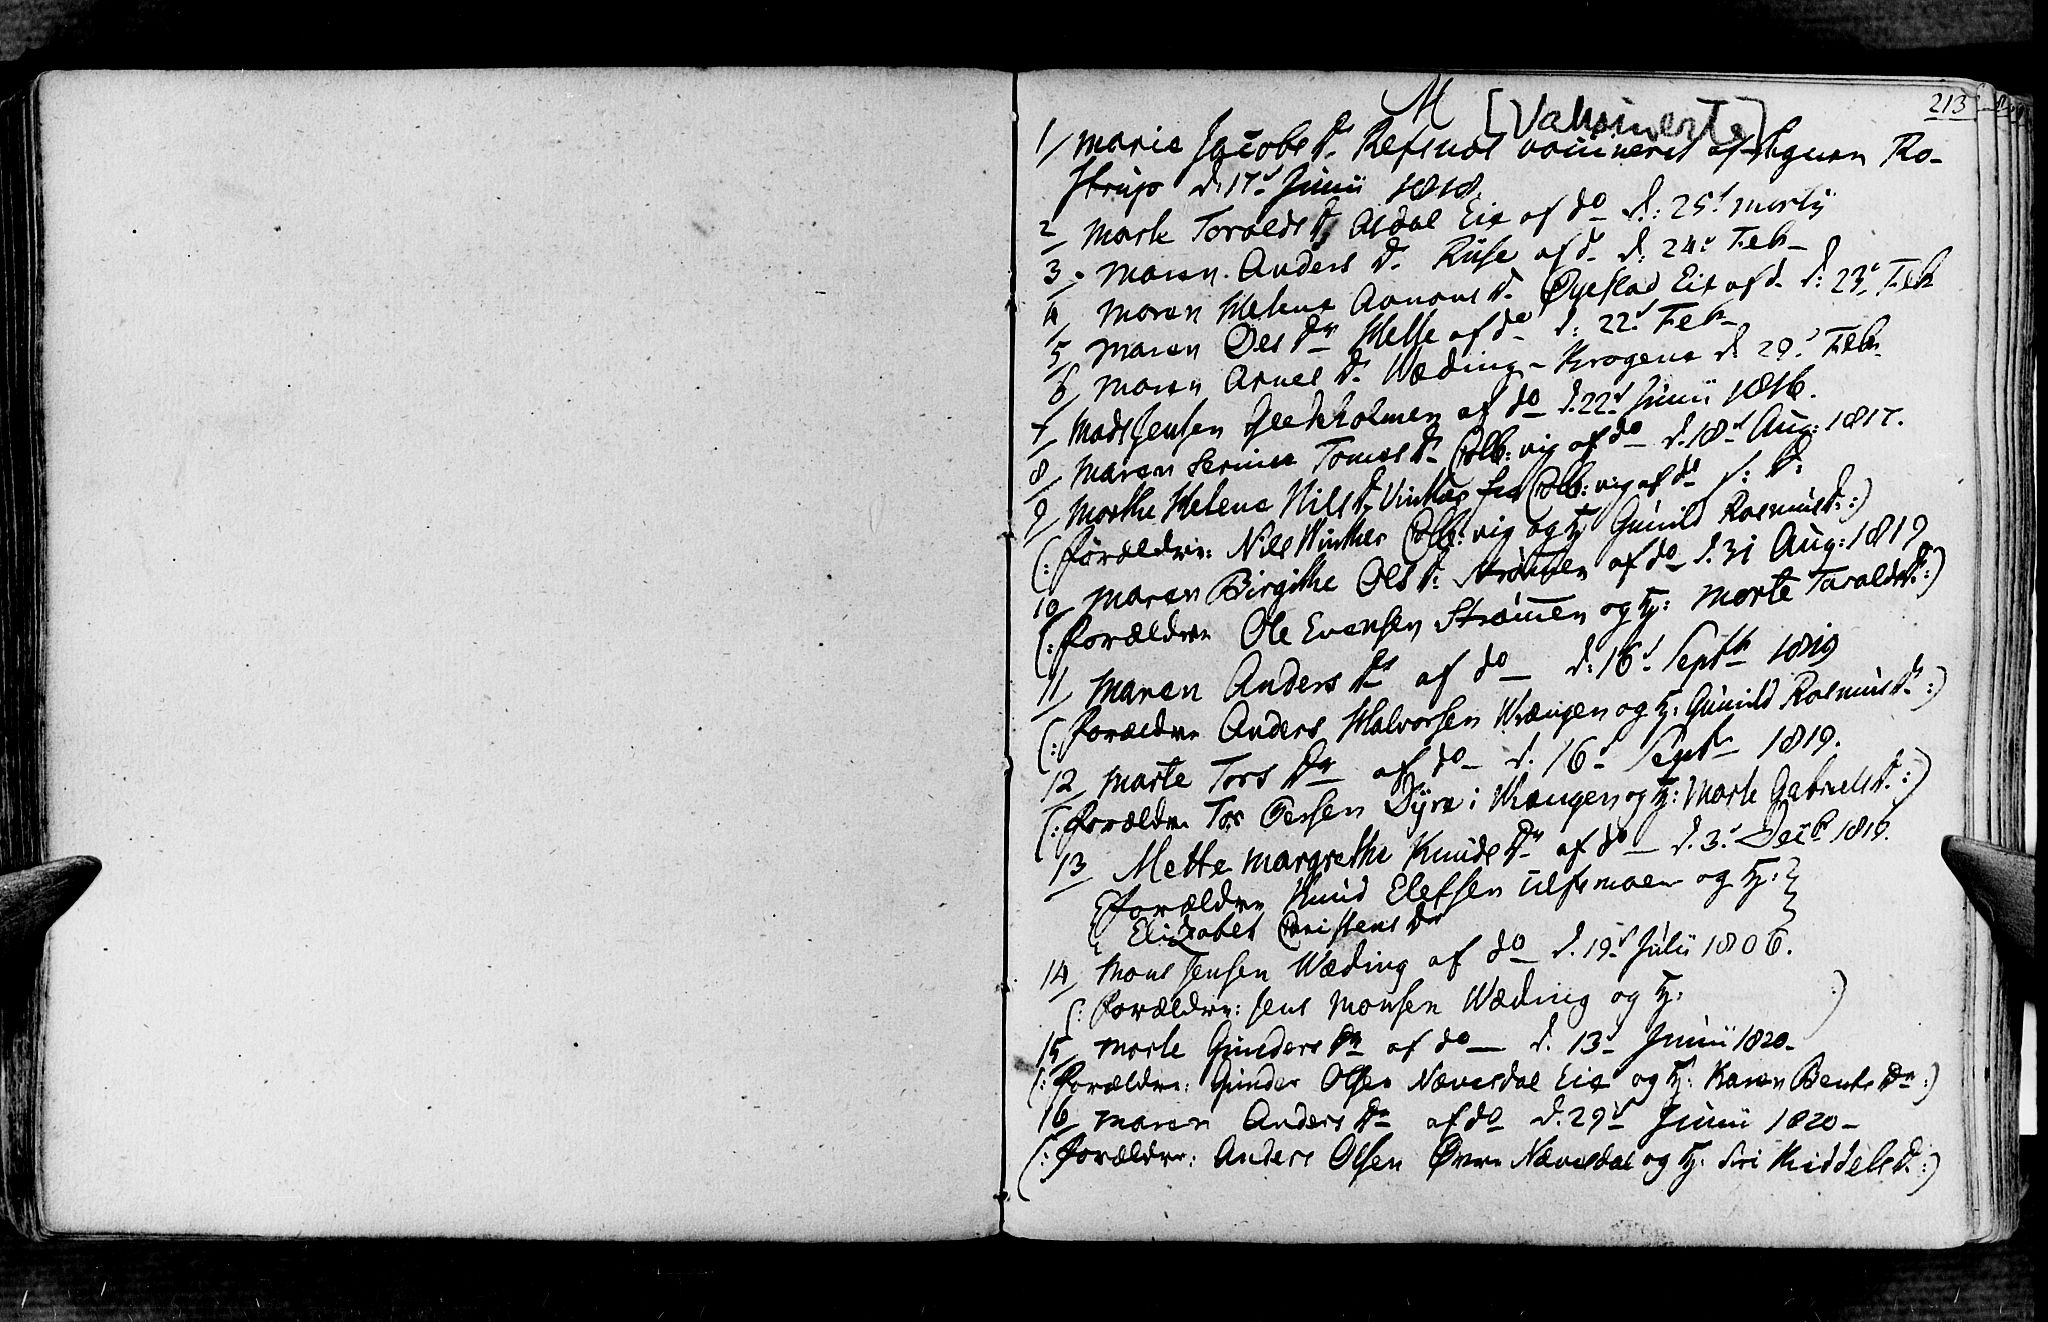 213
M [Vaksinerte]
1/ Marie Jacobs Dr. Refsnæs vaccineret af Agnen Ro-
strup d. 17d Junii 1818.
2/ Marte Toralds Dr Asdal Eie af do d: 25d Martij
3/ Maren Anders Dr. Rise af do d: 24d Feb
4/ Maren Helene Aanons Dr. Øyestad Eie af do d: 23d Feb
5/ Maren Oles Dr Helle af do d: 22d Feb
6/ Maren Arnes Dr. Wæding-Krogene d. 29d Feb
7/ Mads Jensen af do d. 22d Junii 1816.
8/ Maren Serine Tomas Dr Colb:vig af do d. 18d Aug: 1817.
9/ Marthe Helene Nils Dr. Vinther fra Colb:vig af do s: D:
(: forældre: Nils Winther Colb:vig og H: Gunild Rasmus Dr. :)
10/ Maren Birgithe Ols Dr. Strømen af do d. 31 Aug: 1819
(: forældre Ole Evensen Strømen og H: Marte Taralds Dr. :)
11/ Maren Anders Dr af do d: 16d Septb 1819
(: forældre Anders Halvorsen Wrængen og H: Gunild Rasmus Dr. :)
12 Marte Tors Dr af do d. 16d Sept 1819.
(: forældre Tor Dyre i Wrængen og H: Marte Gabriels Dr. :)
13/ Mette Margrethe Knuds Dr af do d. 3d Decb 1819.
forældre Knud Elefsen Ulfsmoen og H:
Elizabet Christens Dr
14/ Mons Jensen Wæding af do d. 19d Julii 1806.
(: forældre: Jens Monsen Wæding og H: :)
15 Marte Gunders Dr af do d. 13d Junii 1820
(: forældre: Gunder Olsen Nævesdal Eie og H: Karen Bents Dr :)
16/ Maren Anders Dr af do d. 29d Junii 1820
(: forældre: Anders Olsen Øvre Nævesdal og H: Siri Kiddels Dr. :)